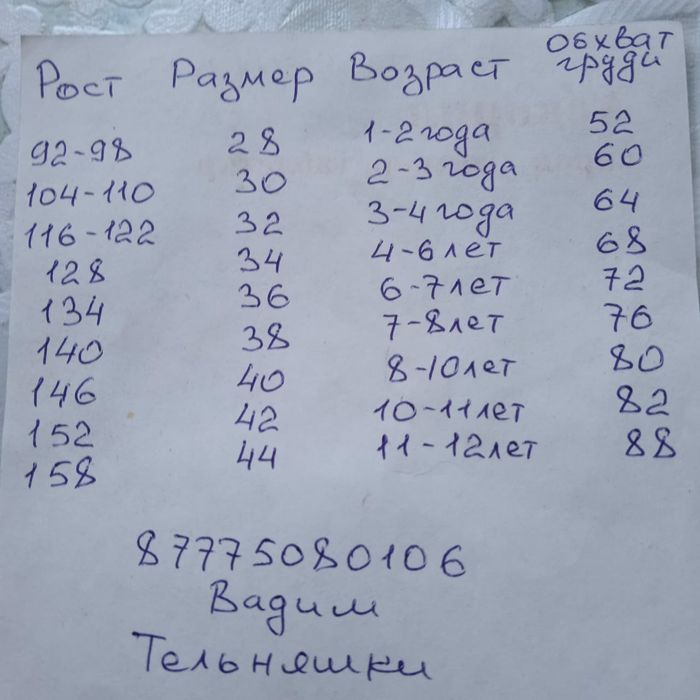 Рост Размер Возраст Обхват груди
92-98 28 1-2 года 52
104-110 30 2-3 года 60
116-122 32 3-4 года 64
128 34 4-6 лет 68
134 36 6-7 лет 72
140 38 7-8 лет 76
146 40 8-10 лет 80
152 42 10-11 лет 82
158 44 11-12 лет 88
87775080106
Вадим
Тельняшки